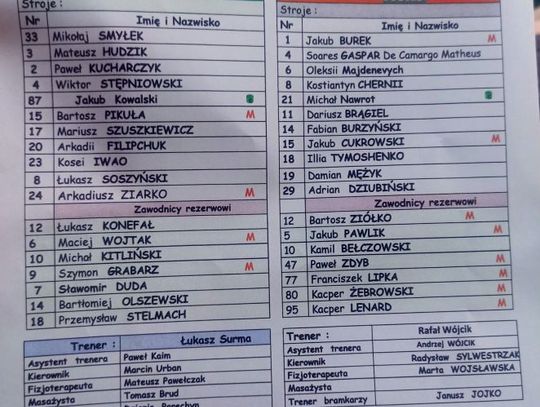 Stroje :
Nr Imię i Nazwisko
33 Mikołaj SMYŁEK
3 Mateusz HUDZIK
2 Paweł KUCHARCZYK
4 Wiktor STĘPNIOWSKI
87 Jakub Kowalski
15 Bartosz PIKUŁA M
17 Mariusz SZUSZKIEWICZ
20 Arkadii FILIPCHUK
23 Kosei IWAO
8 Łukasz SOSZYŃSKI
24 Arkadiusz ZIARKO M
Zawodnicy rezerwowi
12 Łukasz KONEFAŁ
6 Maciej WOJTAK M
10 Michał KITLIŃSKI
9 Szymon GRABARZ M
7 Sławomir DUDA
14 Bartłomiej OLSZEWSKI
18 Przemysław STELMACH
Trener : Łukasz Surma
Asystent trenera Paweł Kaim
Kierownik Marcin Urban
Fizjoterapeuta Mateusz Pawełczak
Masażysta Tomasz Brud
Stroje :
Nr Imię i Nazwisko
1 Jakub BUREK M
4 Soares GASPAR De Camargo Matheus
6 Oleksii Majdenevych
8 Kostiantyn CHERNII
21 Michał Nawrot
11 Dariusz BRĄGIEL
14 Fabian BURZYŃSKI
15 Jakub CUKROWSKI M
18 Illia TYMOSHENKO
19 Damian MĘŻYK
29 Adrian DZIUBIŃSKI
Zawodnicy rezerwowi
12 Bartosz ZIÓŁKO M
5 Jakub PAWLIK M
10 Kamil BEŁCZOWSKI
47 Paweł ZDYB M
77 Franciszek LIPKA M
80 Kacper ŻEBROWSKI M
95 Kacper LENARD M
Trener : Rafał Wójcik
Asystent trenera Andrzej WÓJCIK
Kierownik Radysław SYLWESTRZAK
Fizjoterapeuta Marta WOJSŁAWSKA
Masażysta
Trener bramkarzy Janusz JOJKO